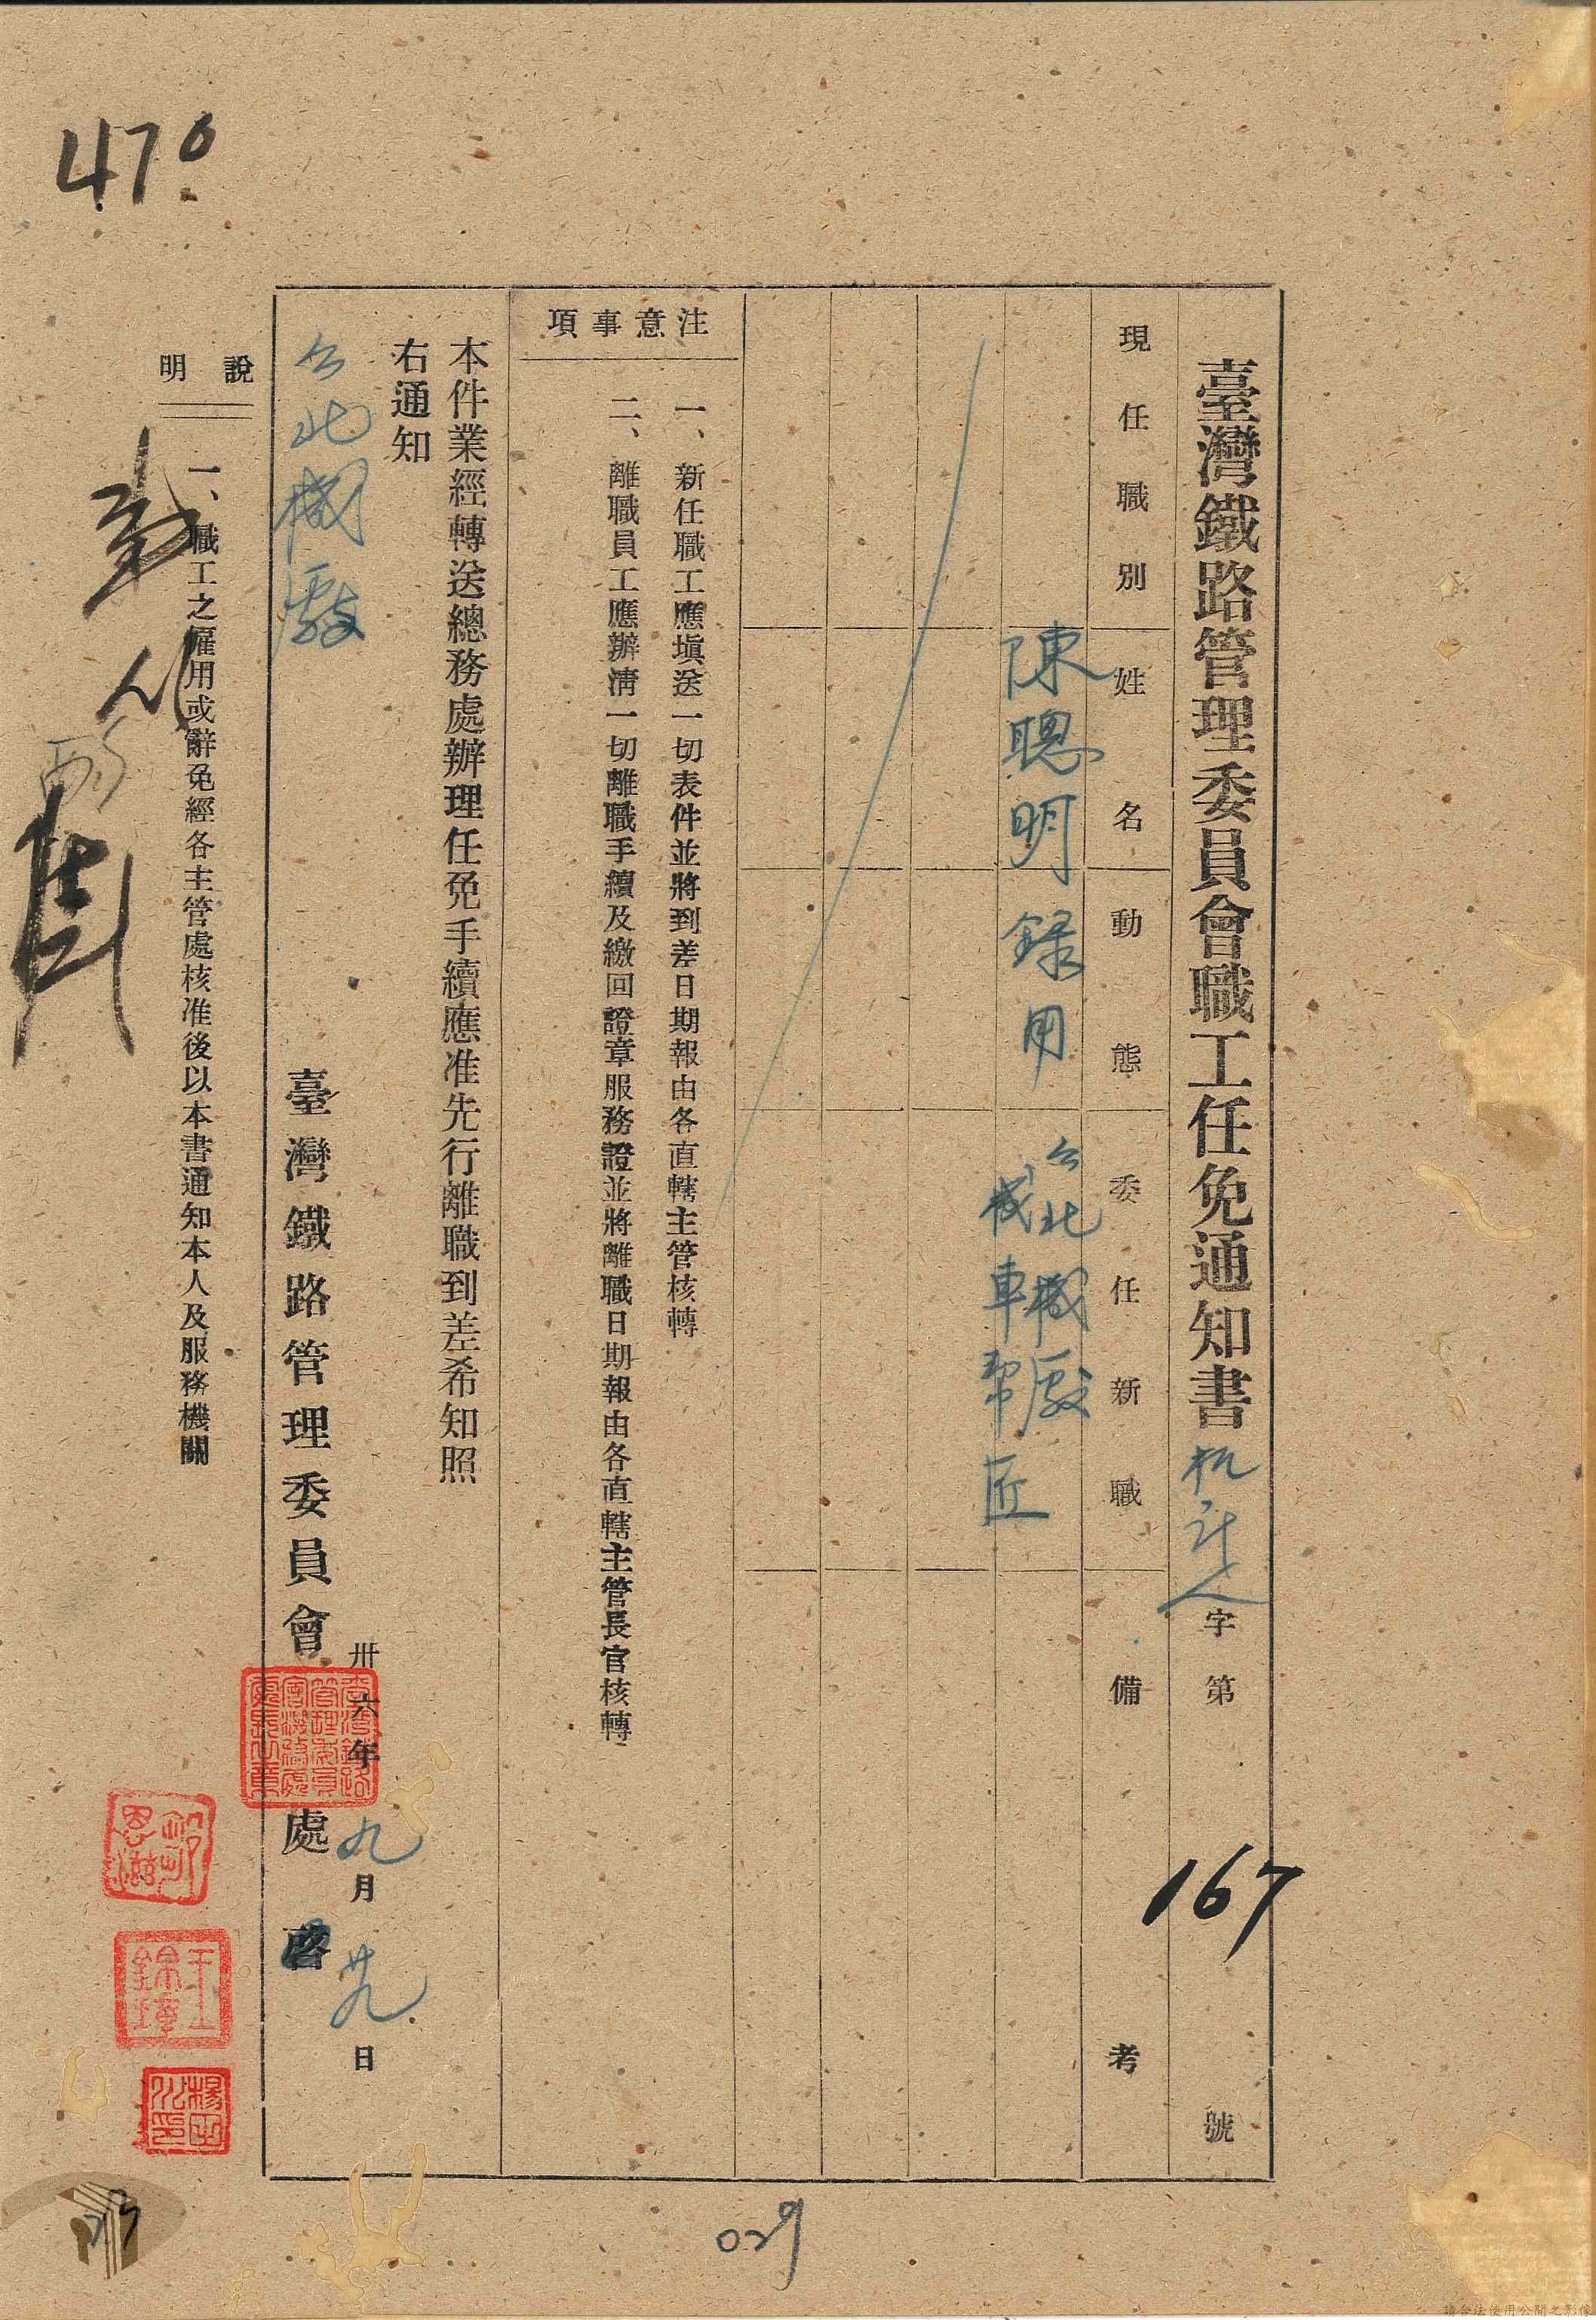 臺灣鐵路管理委員會職工任免通知書 機計人字第 167 號
現任職別 姓名 動態 委任新職 備考
陳聰明 録用 台北機廠
機車幫匠
注意事項
一、新任職工應填送一切表件並將到差日期報由各直轄主管核轉
二、離職員工應辦清一切離職手續及繳回證章服務證並將離職日期報由各直轄主管長官核轉
本件業經轉送總務處辦理任免手續應准先行離職到差希知照
右通知
台北機廠
卅六年九月廿九日
臺灣鐵路管理委員會 處啓
說明
一、職工之僱用或辭免經各主管處核准後以本書通知本人及服務機關
470
029
請合法使用公開之影像